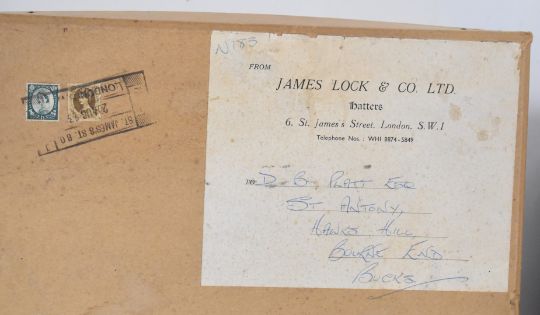 N183
FROM
JAMES LOCK & CO. LTD.
Hatters
6, St. James's Street, London, S.W.1
Telephone Nos. : WHI 8874-5849
TO D. B. PLATT ESQ
ST ANTONY,
HAWKS HILL,
BOURNE END
BUCKS
LONDON
AUG
ST. JAMES'S ST. B.O.